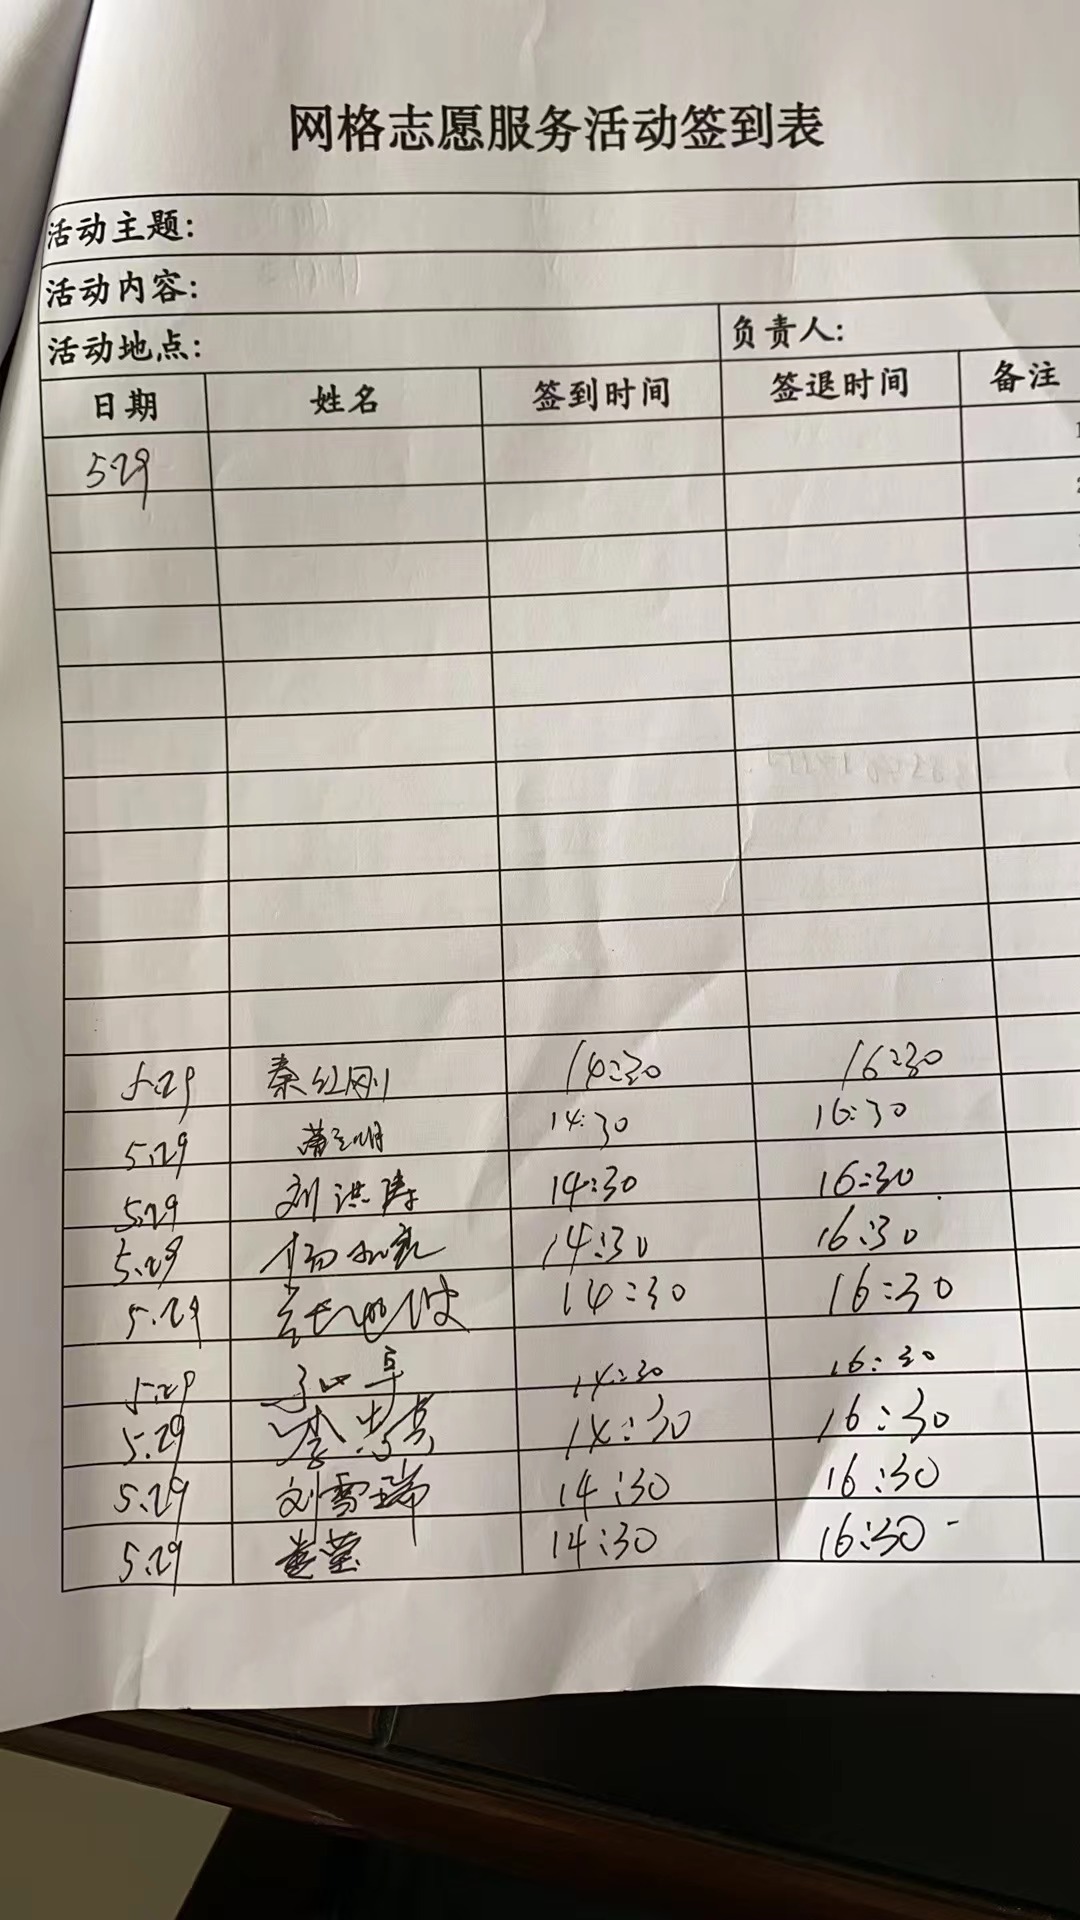 网格志愿服务活动签到表
活动主题:
活动内容:
活动地点: 负责人:
日期 姓名 签到时间 签退时间 备注
5.29
5.29 秦红刚 14:30 16:30
5.29 14:30 16:30
5.29 刘洪涛 14:30 16:30
5.29 杨 14:30 16:30
5.29 14:30 16:30
5.29 14:30 16:30
5.29 李 14:30 16:30
5.29 刘雪瑞 14:30 16:30
5.29 14:30 16:30